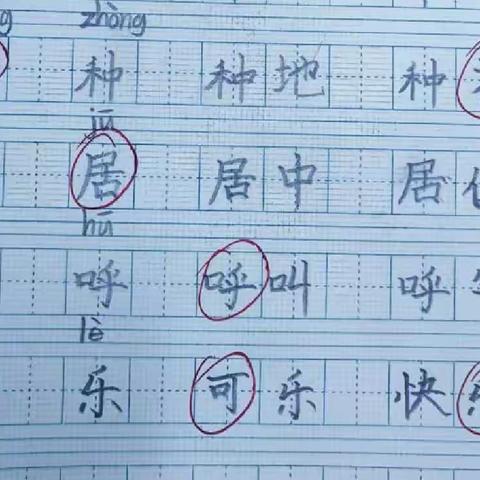 zhòng
种 种地 种
jū
居 居中 居
hū
呼 呼叫 呼
lè
乐 可乐 快